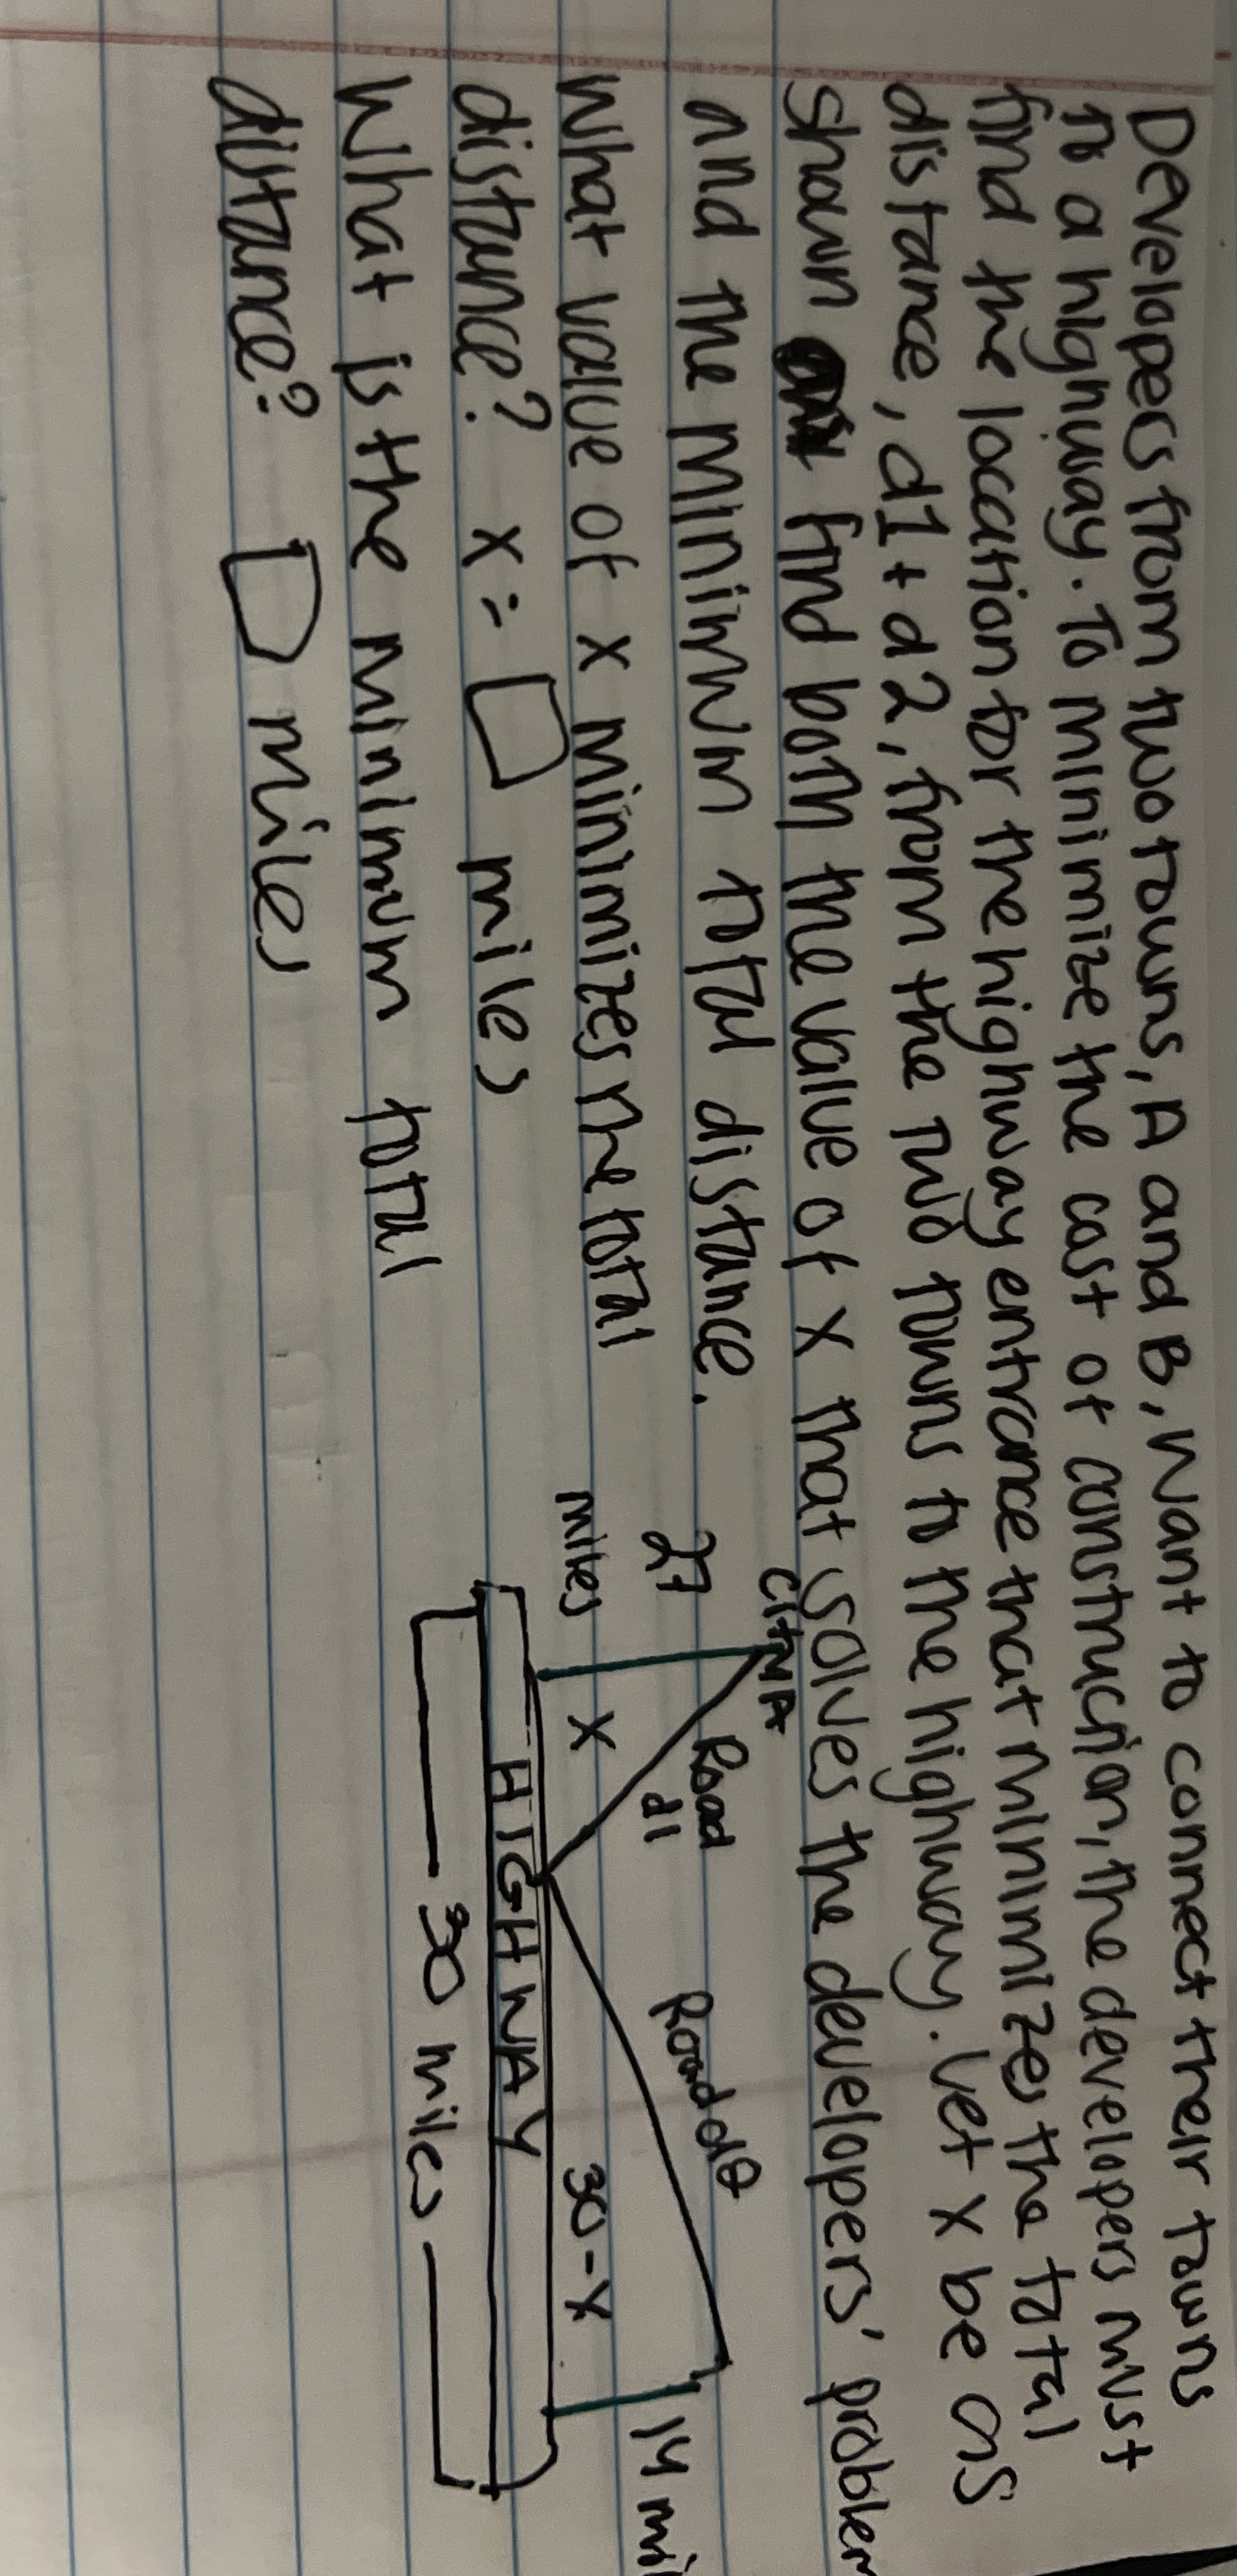 Developers from two towns, A and B, want to connect their towns
to a highway. To minimize the cost of construction, the developers must
find the location for the highway entrance that minimizes the total
distance, d1 + d2, from the two towns to the highway. Let x be as
shown find both the value of x that solves the developers' problem
and the minimum total distance.
What value of x minimizes the total
distance? x = miles
What is the minimum total
distance? miles
City A
27
miles
Road
d1
x
Road d
30-x
14 mi
HIGHWAY
30 miles